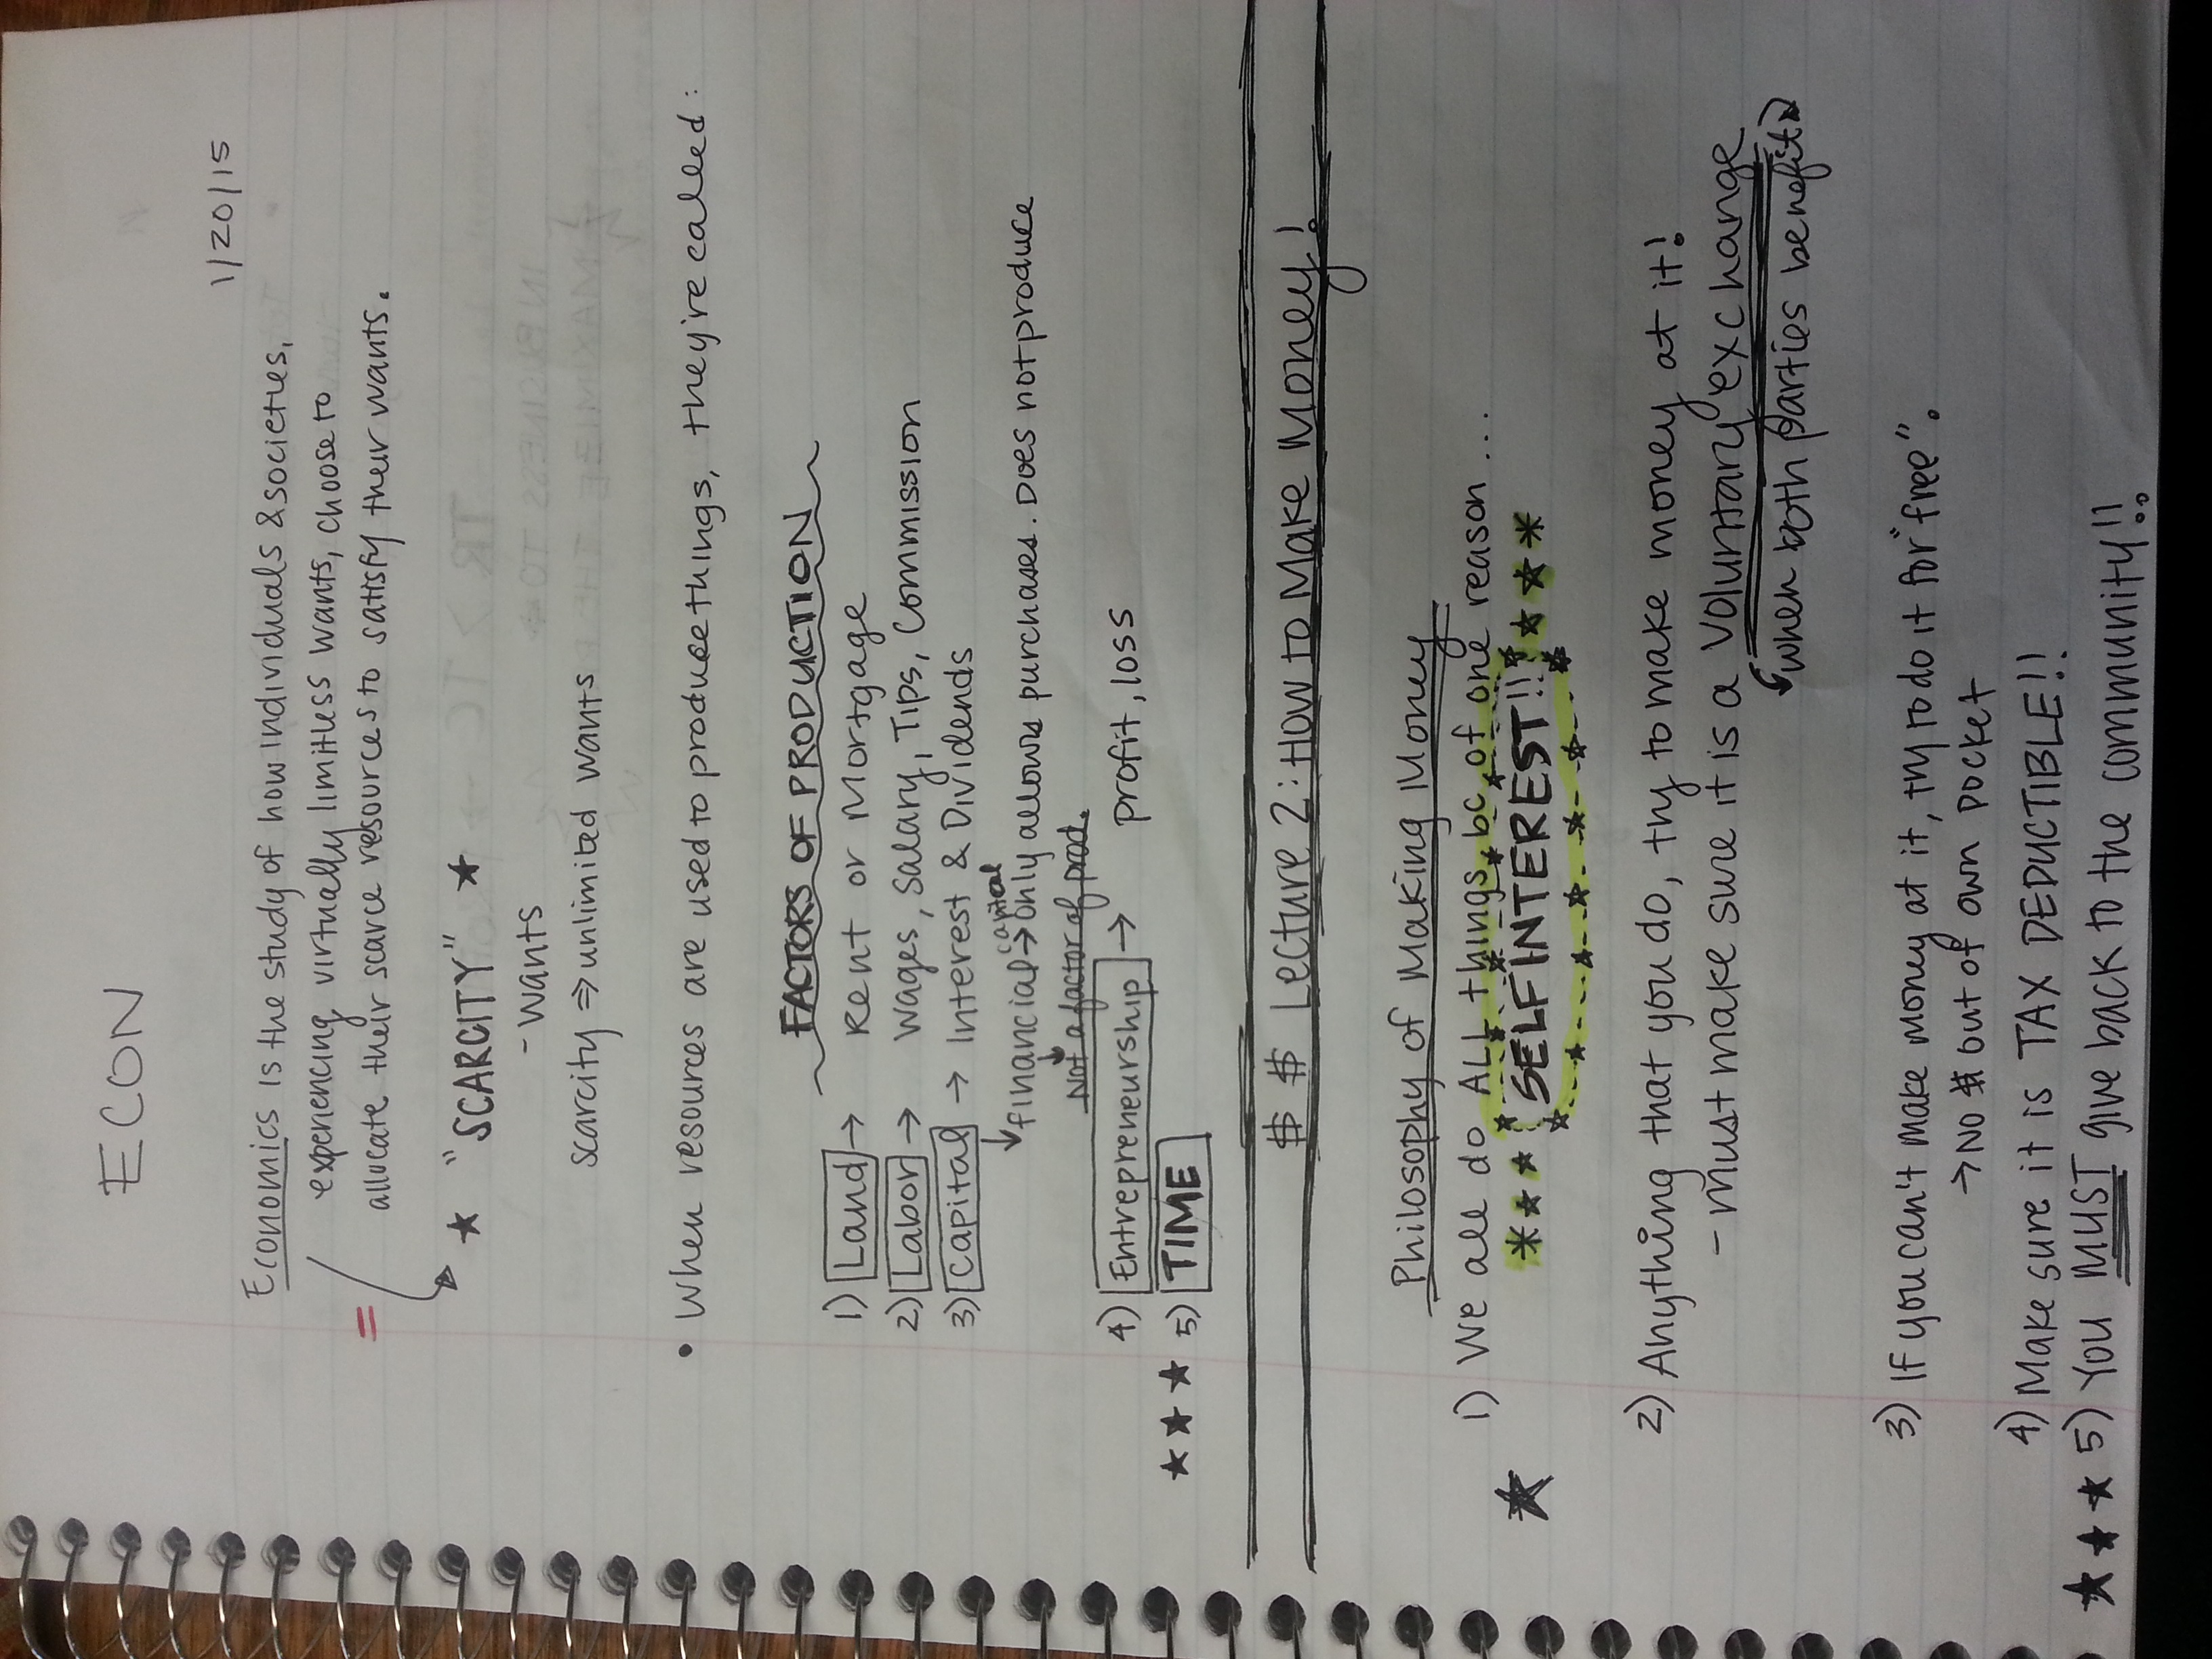 ECON
1/20/15
Economics is the study of how individuals & societies,
experiencing virtually limitless wants, choose to
allocate their scarce resources to satisfy their wants.
★ "SCARCITY" ★
- wants
scarcity ⇒ unlimited wants
• When resources are used to produce things, they're called:
FACTORS OF PRODUCTION
1) Land → Rent or Mortgage
2) Labor → Wages, Salary, Tips, Commission
3) Capital → Interest & Dividends
financial capital → only allows purchases. Does not produce
Not a factor of prod.
4) Entrepreneurship → profit, loss
★★★ 5) TIME
$ $ Lecture 2: How to Make Money!
Philosophy of Making Money
★ 1) We all do ALL things bc of one reason....
SELF INTEREST!!
2) Anything that you do, try to make money at it!
- must make sure it is a voluntary exchange
when both parties benefit
3) If you can't make money at it, try to do it for "free".
→ No $ but of own pocket
4) Make sure it is TAX DEDUCTIBLE!!
★★★ 5) You MUST give back to the community!!